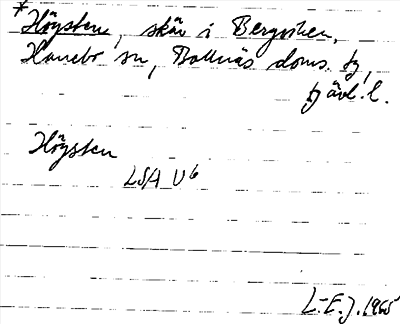 * Höysten, skär i Bergviken,
Hanebo sn, Bollnäs doms. tg,
Gävl. l.
Höysten
LSA U6
L-E. J. 1965